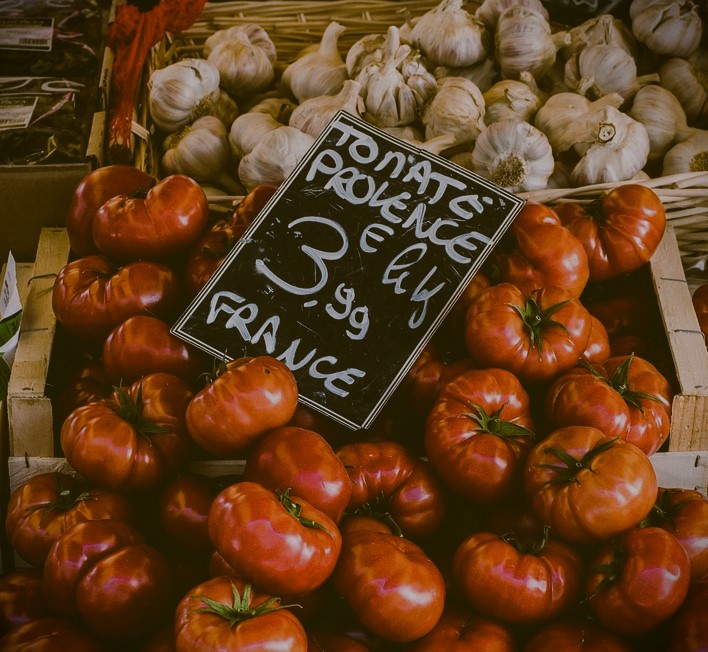 TOMATE
PROVENCE
3,99 € le kg
FRANCE